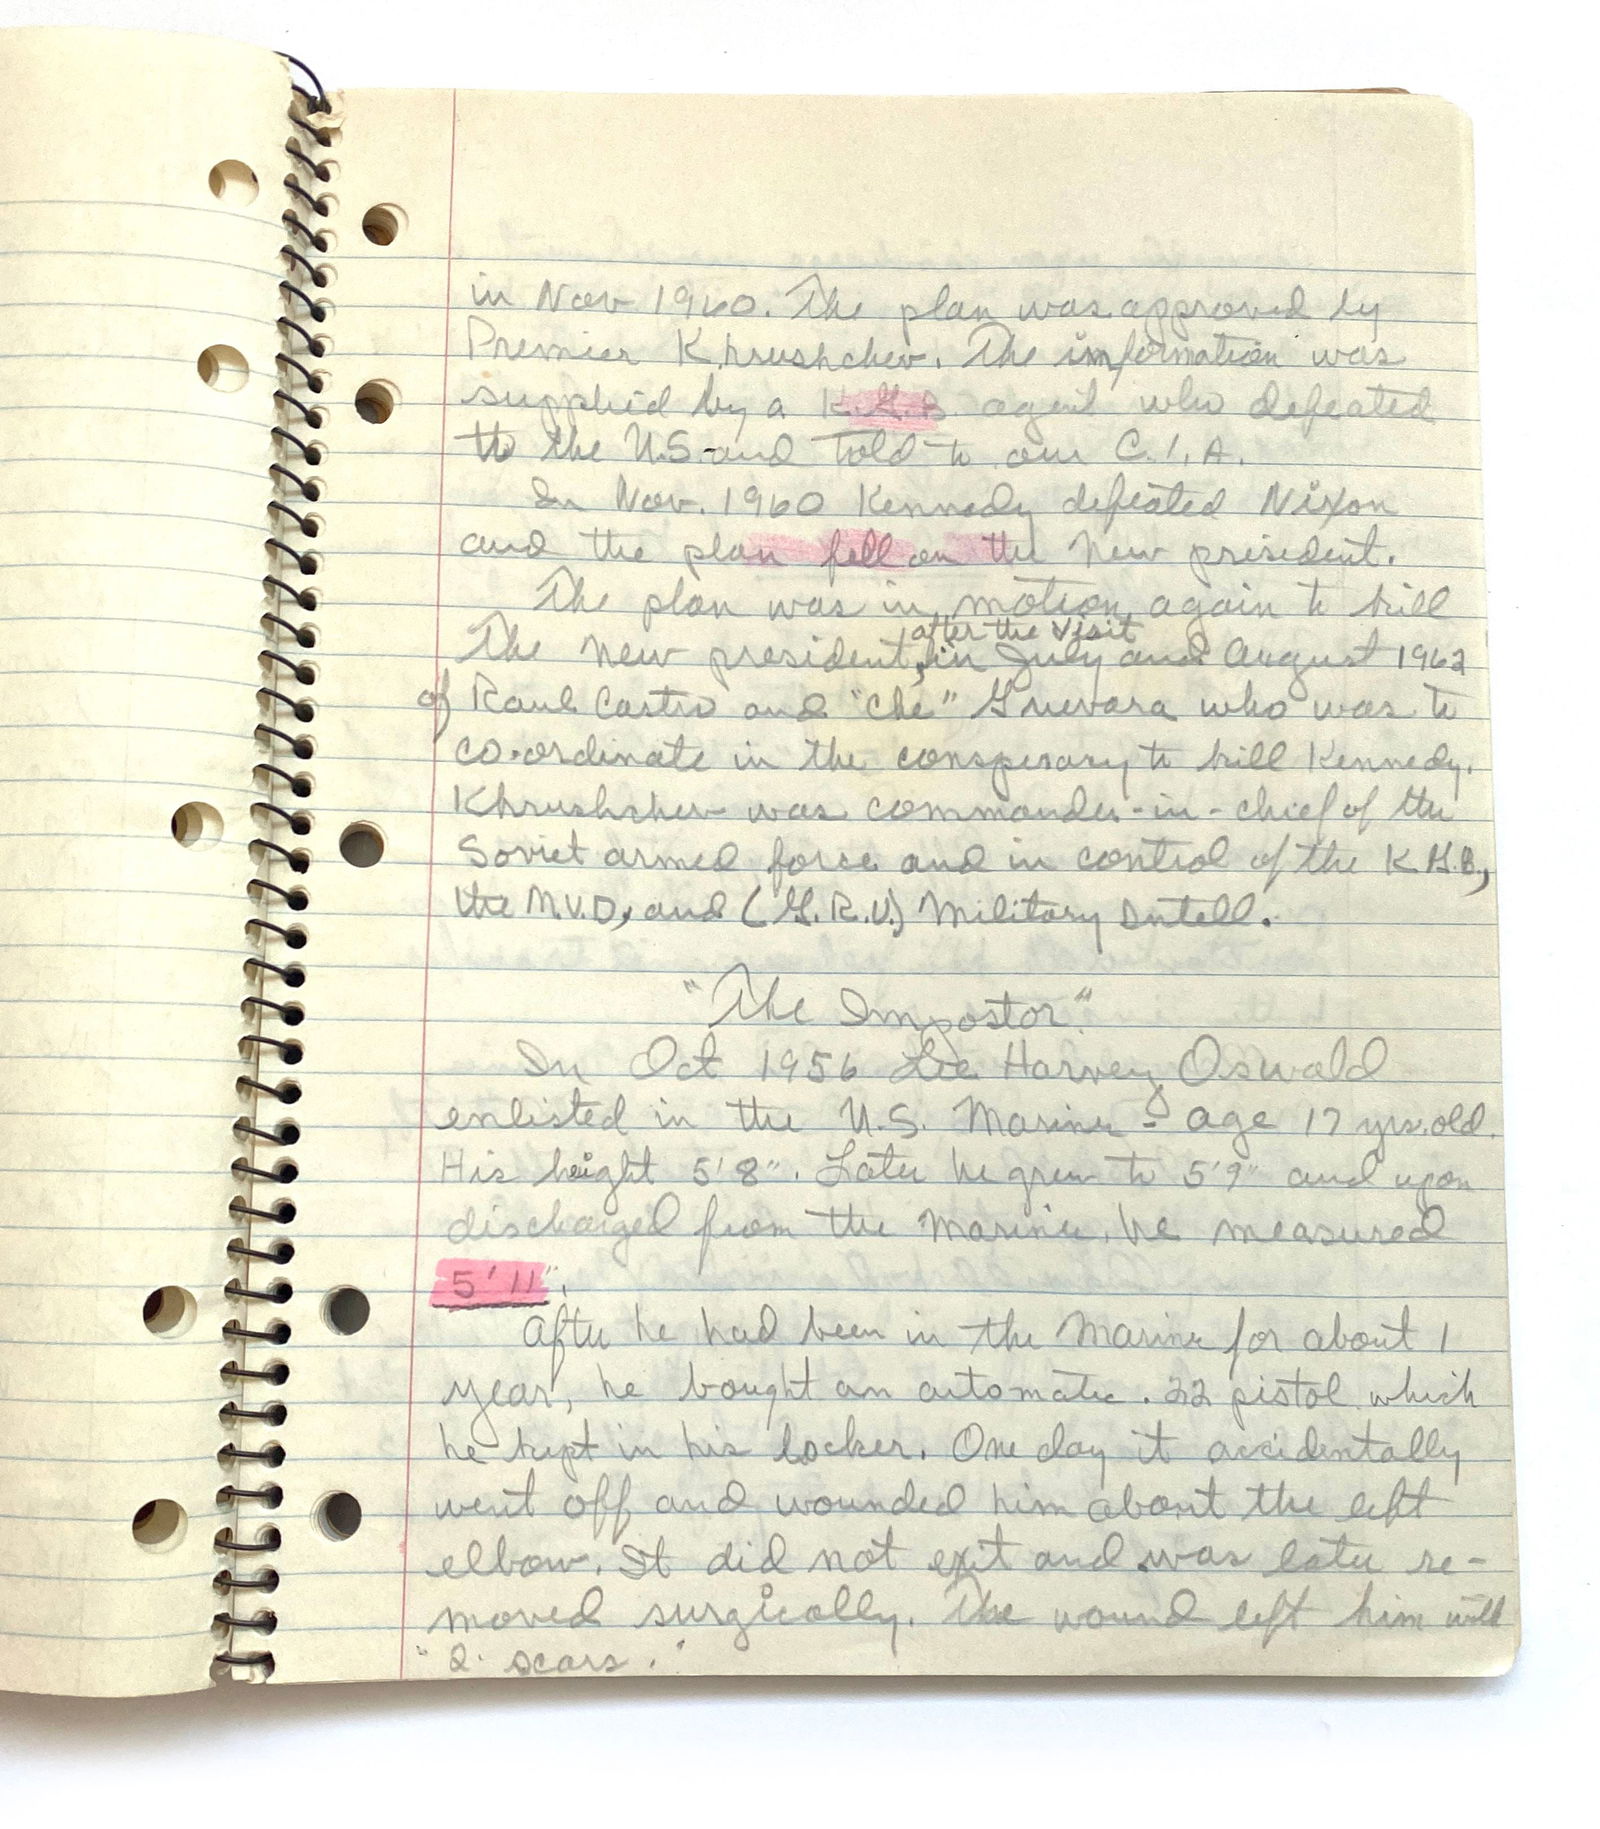 in Nov 1960. The plan was approved by
Premier Khrushchev. The information was
supplied by a K.G.B. agent who defeated
to the U.S. and told to our C.I.A.
In Nov. 1960 Kennedy defeated Nixon
and the plan fell on the new president.
The plan was in motion again to kill
after the visit
the new president, in July and August 1962
of Raul Castro and "Che" Guevara who was to
co-ordinate in the consperacy to kill Kennedy.
Khrushchev was commander-in-chief of the
Soviet armed force and in control of the K.G.B.,
the M.V.D, and (G.R.U.) Military Intell.
"The Impostor."
In Oct 1956 Lee Harvey Oswald
enlisted in the U.S. Marine - age 17 yrs. old.
His height 5'8". Later he grew to 5'9" and upon
discharged from the Marine, he measured
5'11".
After he had been in the Marine for about 1
year, he bought an automatic .22 pistol which
he kept in his locker. One day it accidentally
went off and wounded him about the left
elbow. It did not exit and was later re-
moved surgically. The wound left him with
"2 scars."